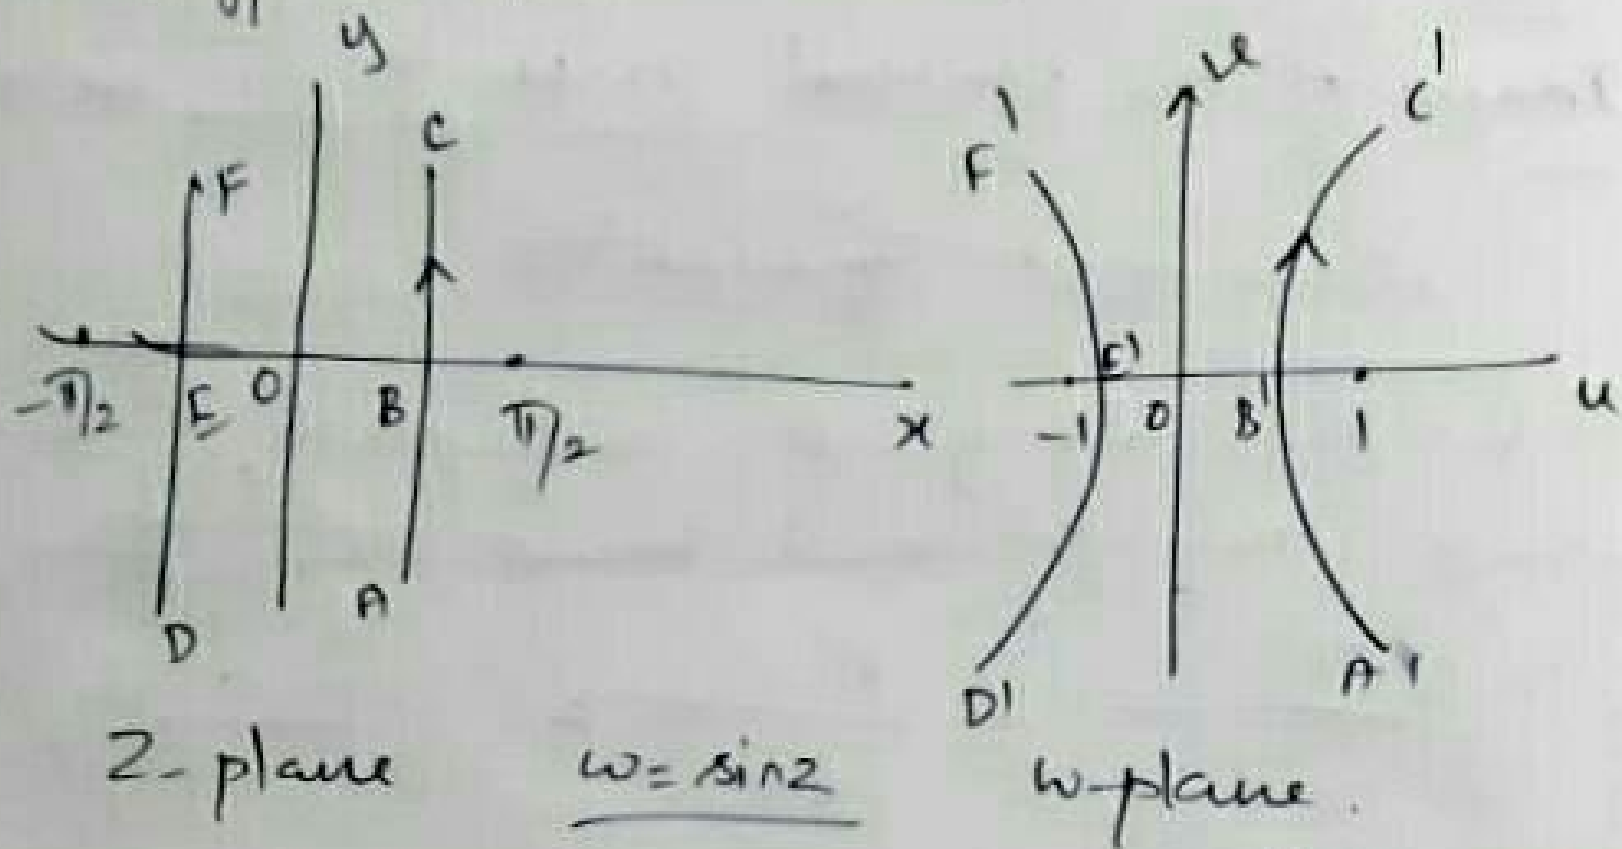 y
C
F
-π/2
E
O
B
π/2
x
A
D
Z-plane
w = sin z
v
F'
C'
E'
-1
O
B'
1
u
D'
A'
w-plane.